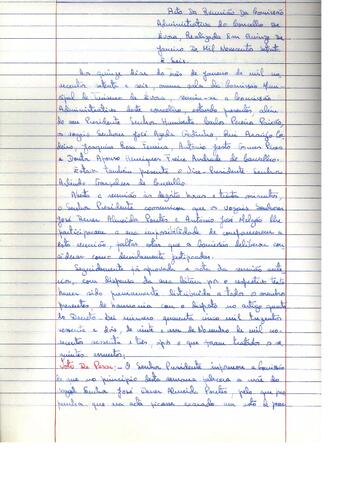 Acta Da Reunião Da Comissão
Administrativa do Concelho de
Évora, Realizada Em Quinze de
Janeiro De Mil Novecentos Setenta
E Seis.
Aos quinze dias do mês de Janeiro de mil no-
vecentos setenta e seis, numa sala da Comissão Muni-
cipal de Turismo de Évora, reuniu-se a Comissão
Administrativa deste concelho, estando presentes além
do seu Presidente Senhor Humberto Carlos Pereira
os vogais Senhores José Godinho, Rui Araújo
Joaquim Rosa Ferreira, António Justo Gomes
e Doutor Afonso Henriques Freire Andrade de Carvalho.
Estava também presente o Vice-Presidente Senhor
Arlindo Gonçalves de Carvalho.
Aberta a reunião às dezoito horas e trinta minutos,
o Senhor Presidente comunicou que os vogais Senhores
José Almeida Pontes e António José Melgão lhe
participaram a sua impossibilidade de comparecerem a
esta reunião, faltas estas que a Comissão deliberou con-
siderar como devidamente justificadas.
Seguidamente foi aprovada a acta da reunião ante-
rior, com dispensa da sua leitura por o respectivo texto
haver sido previamente distribuído a todos os membros
presentes de harmonia com o disposto no artigo quarto
do Decreto-Lei número quarenta cinco mil trezentos
sessenta e dois, de vinte e um de Novembro de mil no-
vecentos sessenta e três, após o que foram tratados os se-
guintes assuntos:
Voto De Pesar - O Senhor Presidente informou a Comissão
de que no princípio desta semana falecera a mãe do
vogal Senhor José Almeida Pontes, pelo que pro-
punha que na acta ficasse exarado um voto de pesar